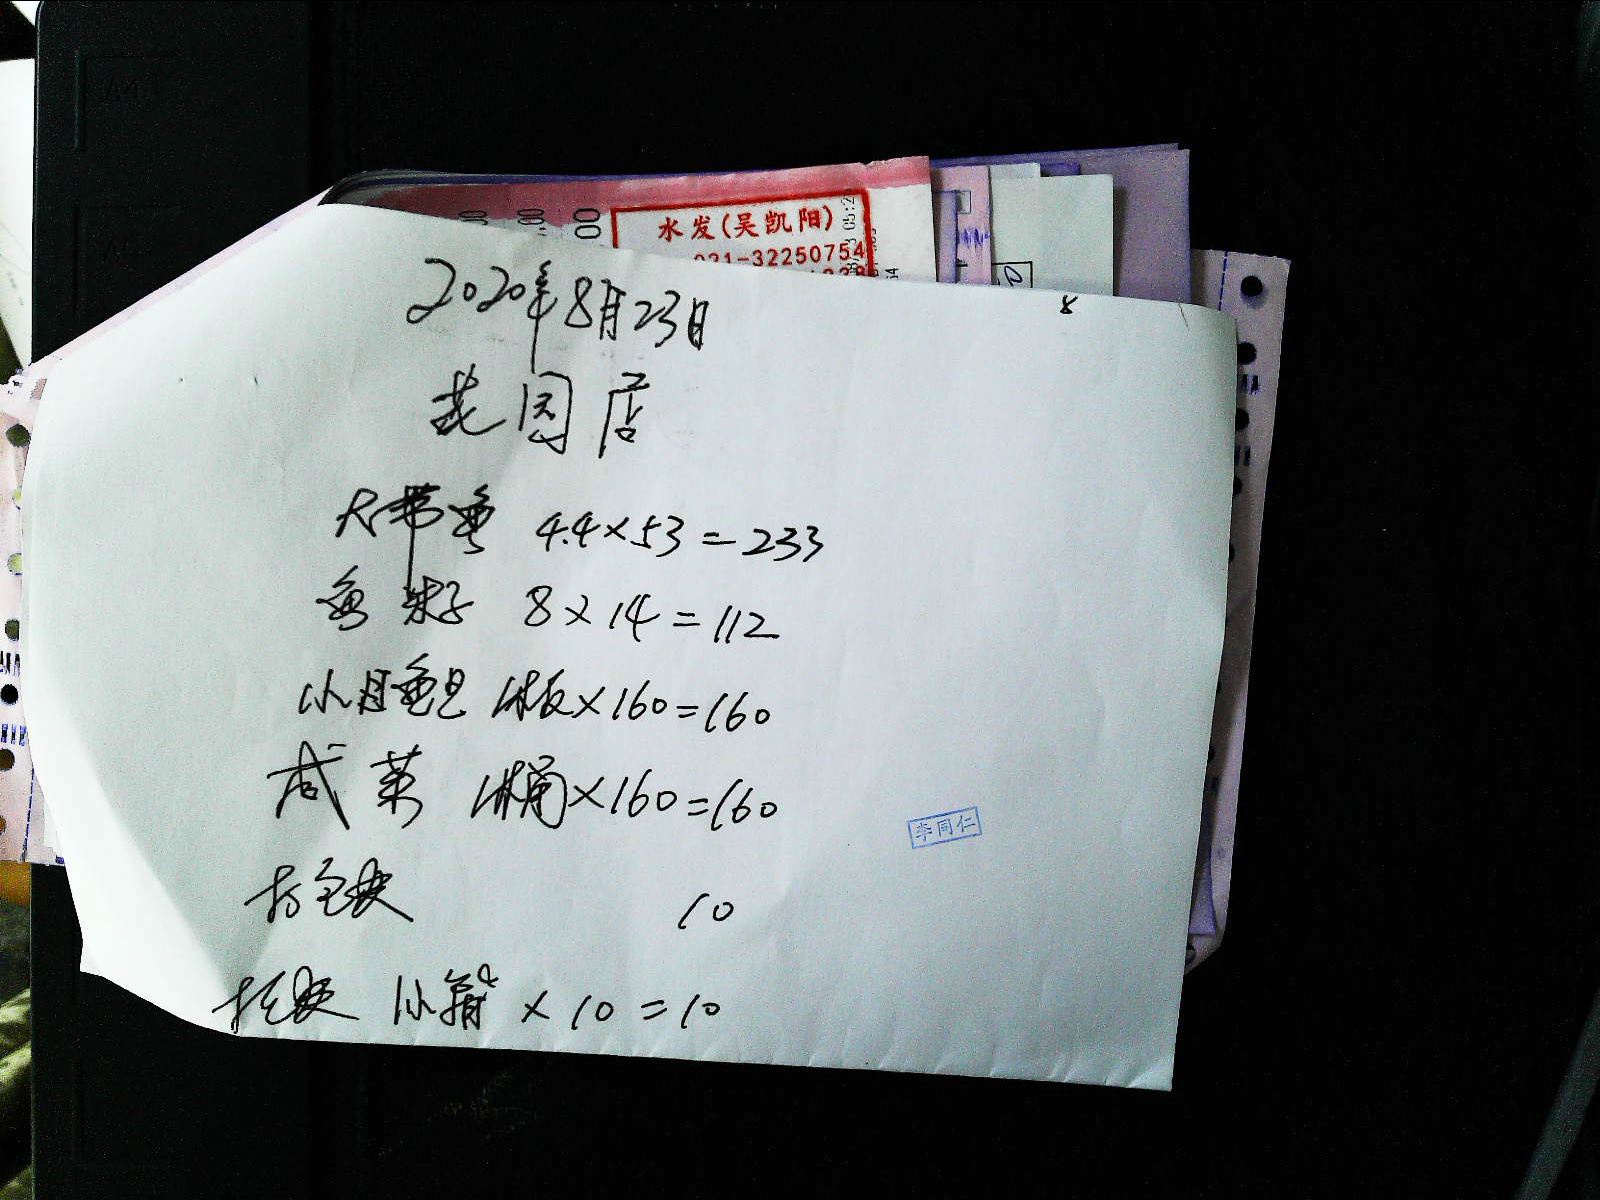 水发(吴凯阳)
021-32250754
2020年8月23日
8
花园店
大带鱼 4.4×53=233
鱼籽 8×14=112
小目鱼旦 1板×160=160
咸菜 1桶×160=160
李同仁
打包费 10
小箱 ×10=10